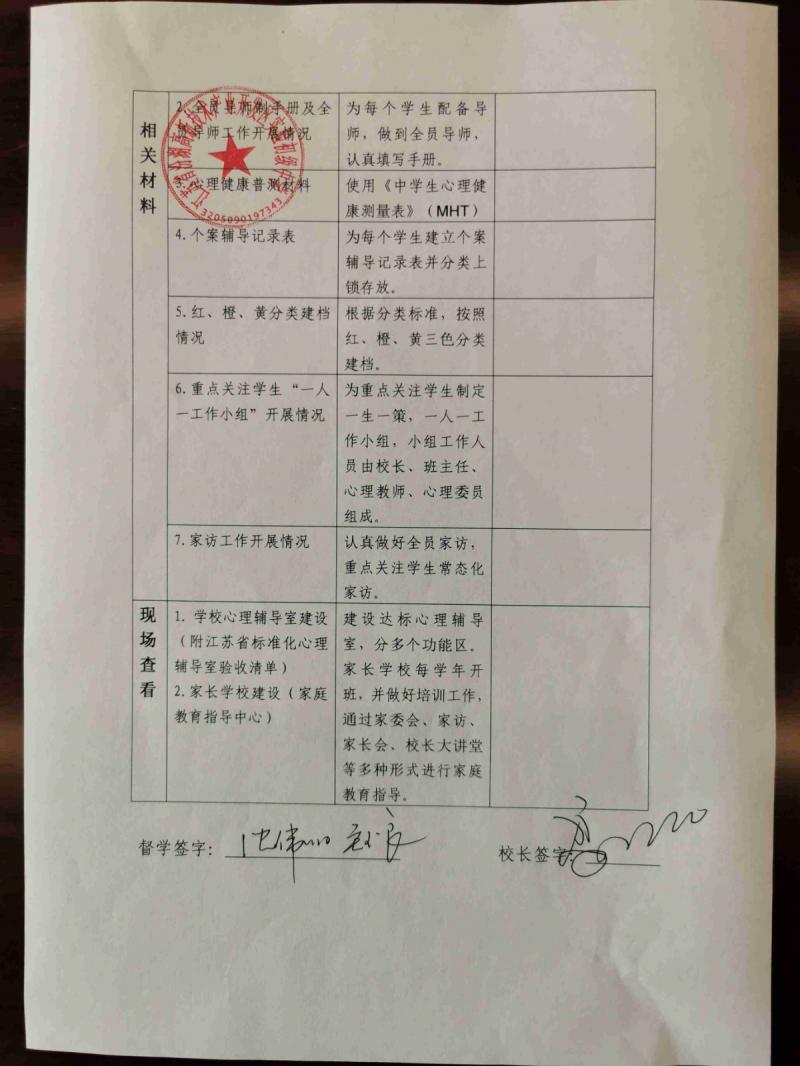 相关材料
2.全员导师制手册及全
员导师工作开展情况
为每个学生配备导
师，做到全员导师，
认真填写手册。
3.心理健康普测材料
使用《中学生心理健
康测量表》（MHT）
4.个案辅导记录表
为每个学生建立个案
辅导记录表并分类上
锁存放。
5.红、橙、黄分类建档
情况
根据分类标准，按照
红、橙、黄三色分类
建档。
6.重点关注学生“一人
一工作小组”开展情况
为重点关注学生制定
一生一策，一人一工
作小组，小组工作人
员由校长、班主任、
心理教师、心理委员
组成。
7.家访工作开展情况
认真做好全员家访，
重点关注学生常态化
家访。
现场查看
1. 学校心理辅导室建设
（附江苏省标准化心理
辅导室验收清单）
2.家长学校建设（家庭
教育指导中心）
建设达标心理辅导
室，分多个功能区。
家长学校每学年开
班，并做好培训工作，
通过家委会、家访、
家长会、校长大讲堂
等多种形式进行家庭
教育指导。
3205090197343
督学签字：
校长签字：